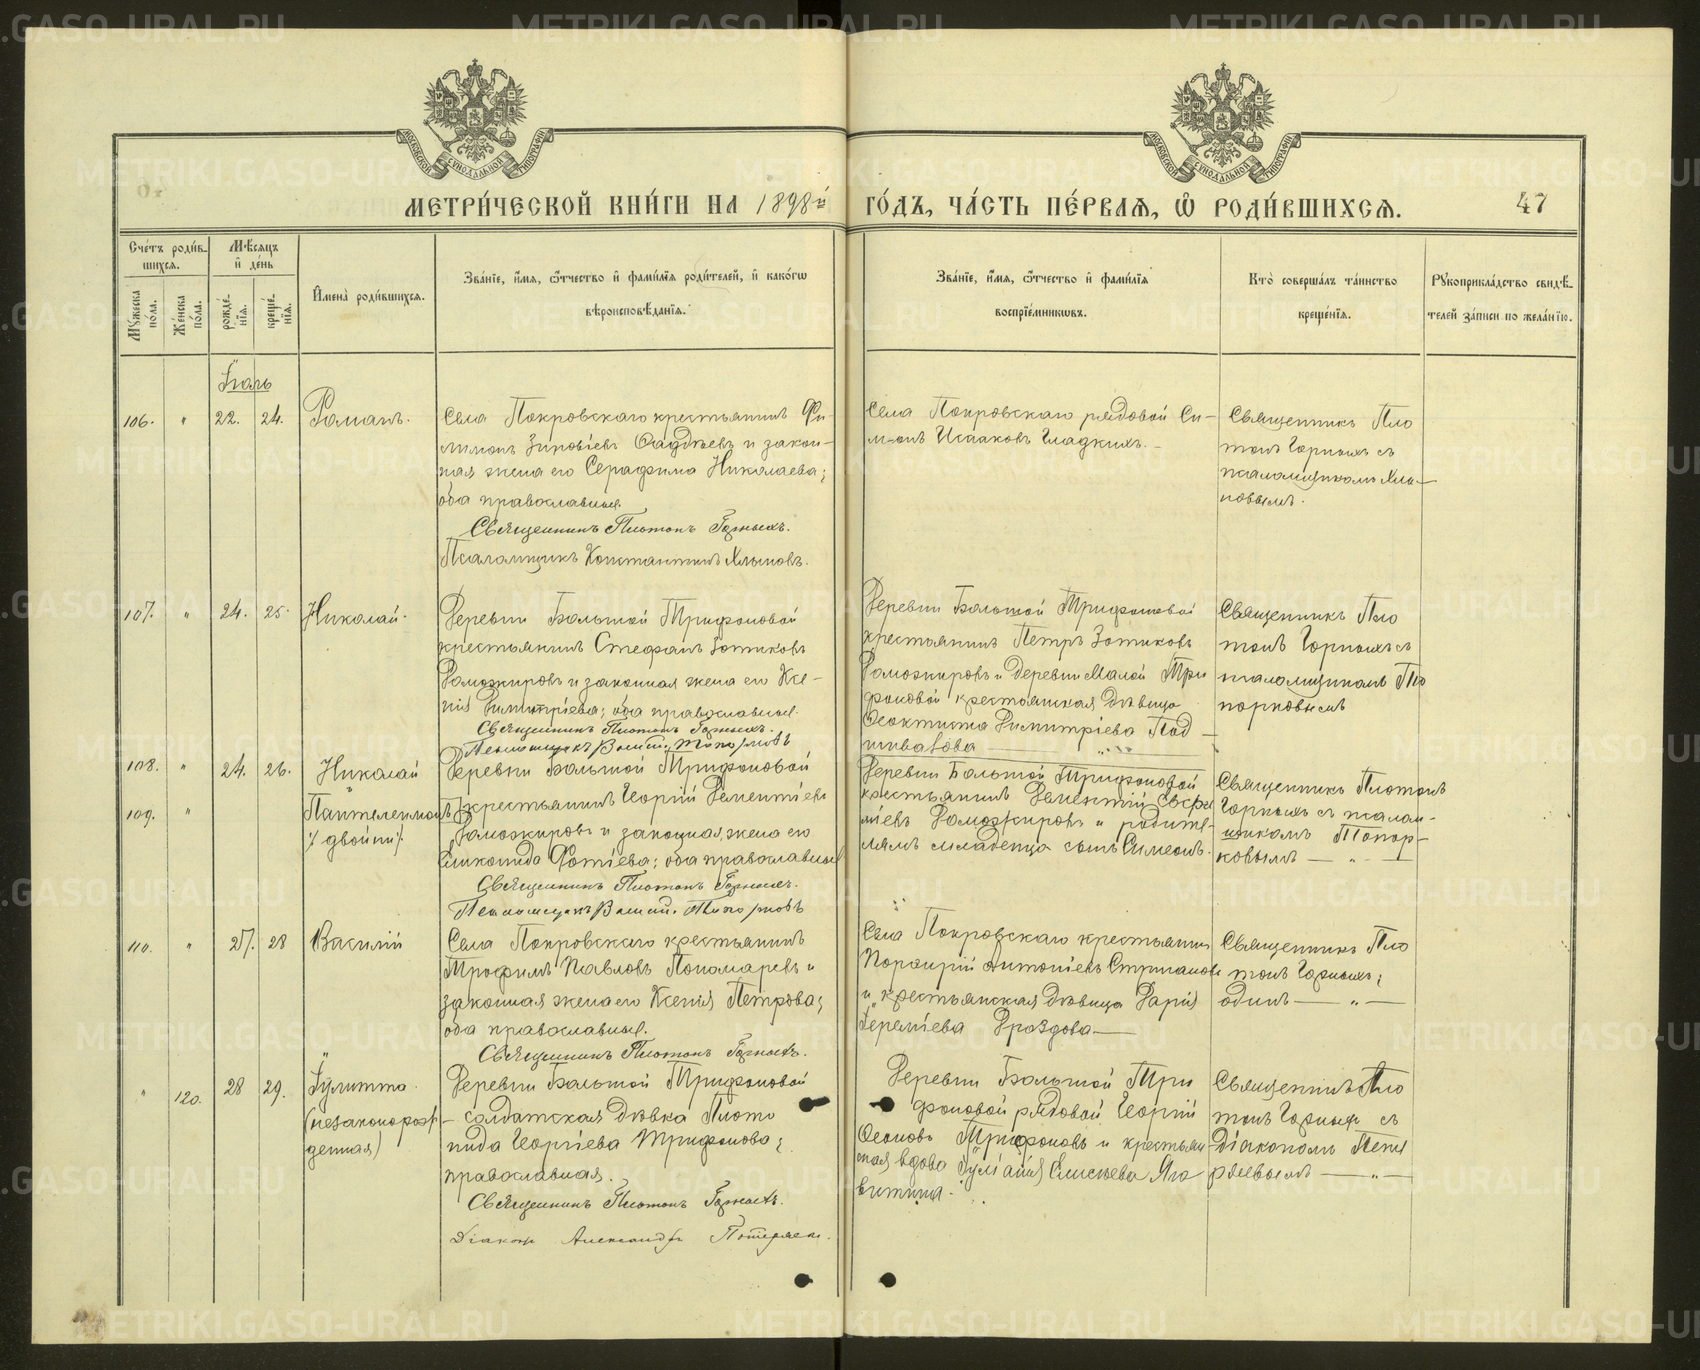 METRIKI.GASO-URAL.RU
МОСКОВСКОЙ СѴНОДАЛЬНОЙ ТИПОГРАФІИ
МОСКОВСКОЙ СѴНОДАЛЬНОЙ ТИПОГРАФІИ
МЕТРИ́ЧЕСКОЙ КНИ́ГИ НА 1898й ГО́ДЪ, ЧА́СТЬ ПЕ́РВАѦ, Ѽ РОДИ́ВШИХСѦ. 47
Сче́тъ роди́в-
шихсѧ.
Мꙋжеска по́ла.
Же́нска по́ла.
Мѣ́сѧцъ
и҆ де́нь
рожде́-
нїѧ.
креще́-
нїѧ.
И҆мена̀ роди́вшихсѧ.
Зва́нїе, и҆́мѧ, ѻ҆́тчество и҆ фами́лїѧ роди́телей, и҆ како́гѡ
вѣроисповѣ́данїѧ.
Зва́нїе, и҆́мѧ, ѻ҆́тчество и҆ фами́лїѧ
воспрїе́мникѡвъ.
Кто̀ соверша́лъ та́инство
креще́нїѧ.
Рꙋкоприкла́дство свидѣ́-
телей за́писи по жела́нїю.
Іюль
106. " 22. 24. Романъ.
Села Покровскаго крестьянинъ Фи-
лимонъ Зиновіевъ Авдѣевъ и закон-
ная жена его Серафима Николаева;
оба православные.
Священникъ Платонъ Горныхъ.
Псаломщикъ Константинъ Хлыновъ.
Села Покровскаго рядовой Си-
монъ Исааковъ Гладкихъ.
Священникъ Пла
тонъ Горныхъ съ
псаломщикомъ Хлы-
новымъ.
107. " 24. 25. Николай.
Деревни Большой Трифоновой
крестьянинъ Стефанъ Зотиковъ
Доможировъ и законная жена его Ксе-
нія Димитріева; оба православные.
Священникъ Платонъ Горныхъ.
Псаломщикъ Топорковъ
Деревни Большой Трифоновой
крестьянинъ Петръ Зотиковъ
Доможировъ и деревни Малой Три
фоновой крестьянская дѣвица
Ѳеоктиста Димитріева Под-
шивалова — "
Священникъ Пла
тонъ Горныхъ съ
псаломщикомъ То
порковымъ
108. " 24. 26. Николай
109. " Пантелеимонъ
/двойни/.
Деревни Большой Трифоновой
крестьянинъ Георгій Дементіевъ
Доможировъ и законная жена его
Фотіева; оба православные
Священникъ Платонъ Горныхъ.
Псаломщикъ Топорковъ
Деревни Большой Трифоновой
крестьянинъ Дементій
Доможировъ и родите-
лямъ младенца сынъ Симеонъ.
Священникъ Платонъ
Горныхъ съ псалом-
щикомъ Топор-
ковымъ — " —
110. " 27. 28 Василій
Села Покровскаго крестьянинъ
Трофимъ Павловъ Пономаревъ и
законная жена его Ксенія Петрова;
оба православные.
Священникъ Платонъ Горныхъ.
Села Покровскаго крестьянинъ
Порфирій Антоніевъ Стригановъ
и крестьянская дѣвица Дарія
Іереміева Дроздова —
Священникъ Пла
тонъ Горныхъ;
одинъ — " —
" 120. 28 29. Іулитта
(незаконорож-
денная)
Деревни Большой Трифоновой
солдатская дѣвка Плато
нида Георгіева Трифонова;
православная.
Священникъ Платонъ Горныхъ.
Діаконъ Александръ
Деревни Большой Три
фоновой рядовой Георгій
Трифоновъ и крестьян
ская вдова Іуліанія Елисѣева
Священникъ Пла
тонъ Горныхъ съ
Діакономъ
— " —